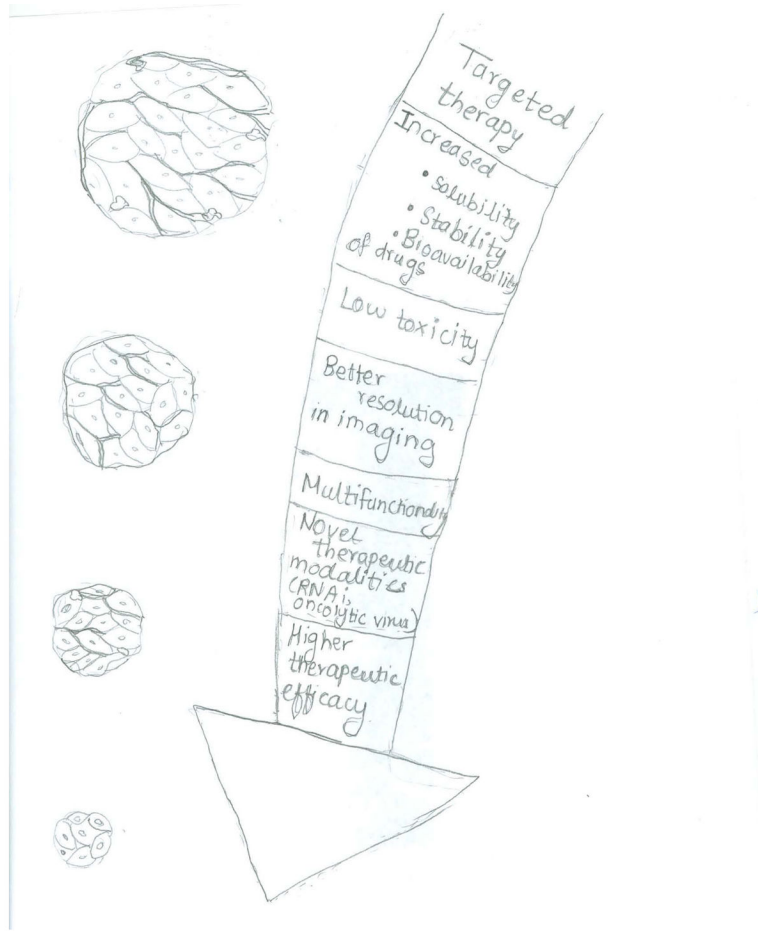 Targeted
therapy
Increased
• solubility
• Stability
• Bioavailability
of drugs
Low toxicity
Better
resolution
in imaging
Multifunctionality
Novel
therapeutic
modalities
(RNAi,
oncolytic virus)
Higher
therapeutic
efficacy